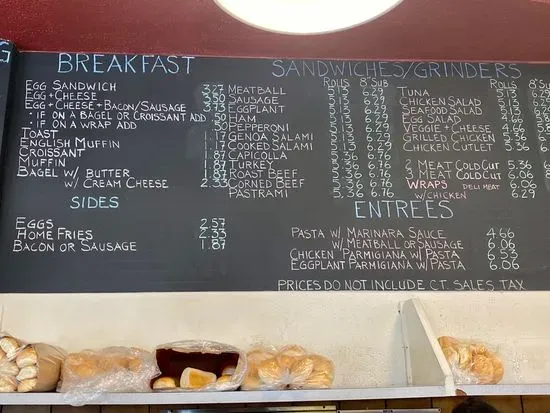 BREAKFAST
EGG SANDWICH 3.27
EGG + CHEESE 3.50
EGG + CHEESE + BACON/SAUSAGE
· IF ON A BAGEL OR CROISSANT ADD .50
· IF ON A WRAP ADD .50
TOAST 1.17
ENGLISH MUFFIN 1.17
CROISSANT 1.87
MUFFIN 1.87
BAGEL W/ BUTTER 1.87
W/ CREAM CHEESE 2.33
SIDES
EGGS 2.57
HOME FRIES 2.33
BACON OR SAUSAGE 1.87
SANDWICHES/GRINDERS
ROLLS 8" SUB
MEATBALL 5.13 6.29
SAUSAGE 5.13 6.29
EGGPLANT 5.13 6.29
HAM 5.13 6.29
PEPPERONI 5.13 6.29
GENOA SALAMI 5.13 6.29
COOKED SALAMI 5.13 6.29
CAPICOLLA 5.36 6.76
TURKEY 5.36 6.76
ROAST BEEF 5.36 6.76
CORNED BEEF 5.36 6.76
PASTRAMI 5.36 6.76
ROLLS 8" SUB
TUNA 5.13
CHICKEN SALAD 5.13
SEAFOOD SALAD 5.13
EGG SALAD 4.66
VEGGIE + CHEESE 4.66
GRILLED CHICKEN
CHICKEN CUTLET
2 MEAT COLD CUT 5.36
3 MEAT COLD CUT 6.06
WRAPS DELI MEAT 6.06
W/ CHICKEN 6.29
ENTREES
PASTA W/ MARINARA SAUCE 4.66
W/ MEATBALL OR SAUSAGE 6.06
CHICKEN PARMIGIANA W/ PASTA 6.53
EGGPLANT PARMIGIANA W/ PASTA 6.06
PRICES DO NOT INCLUDE CT. SALES TAX